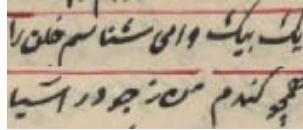 یک بیک وامی شناسم خلق را
همچو گندم من ز جو در اسیا